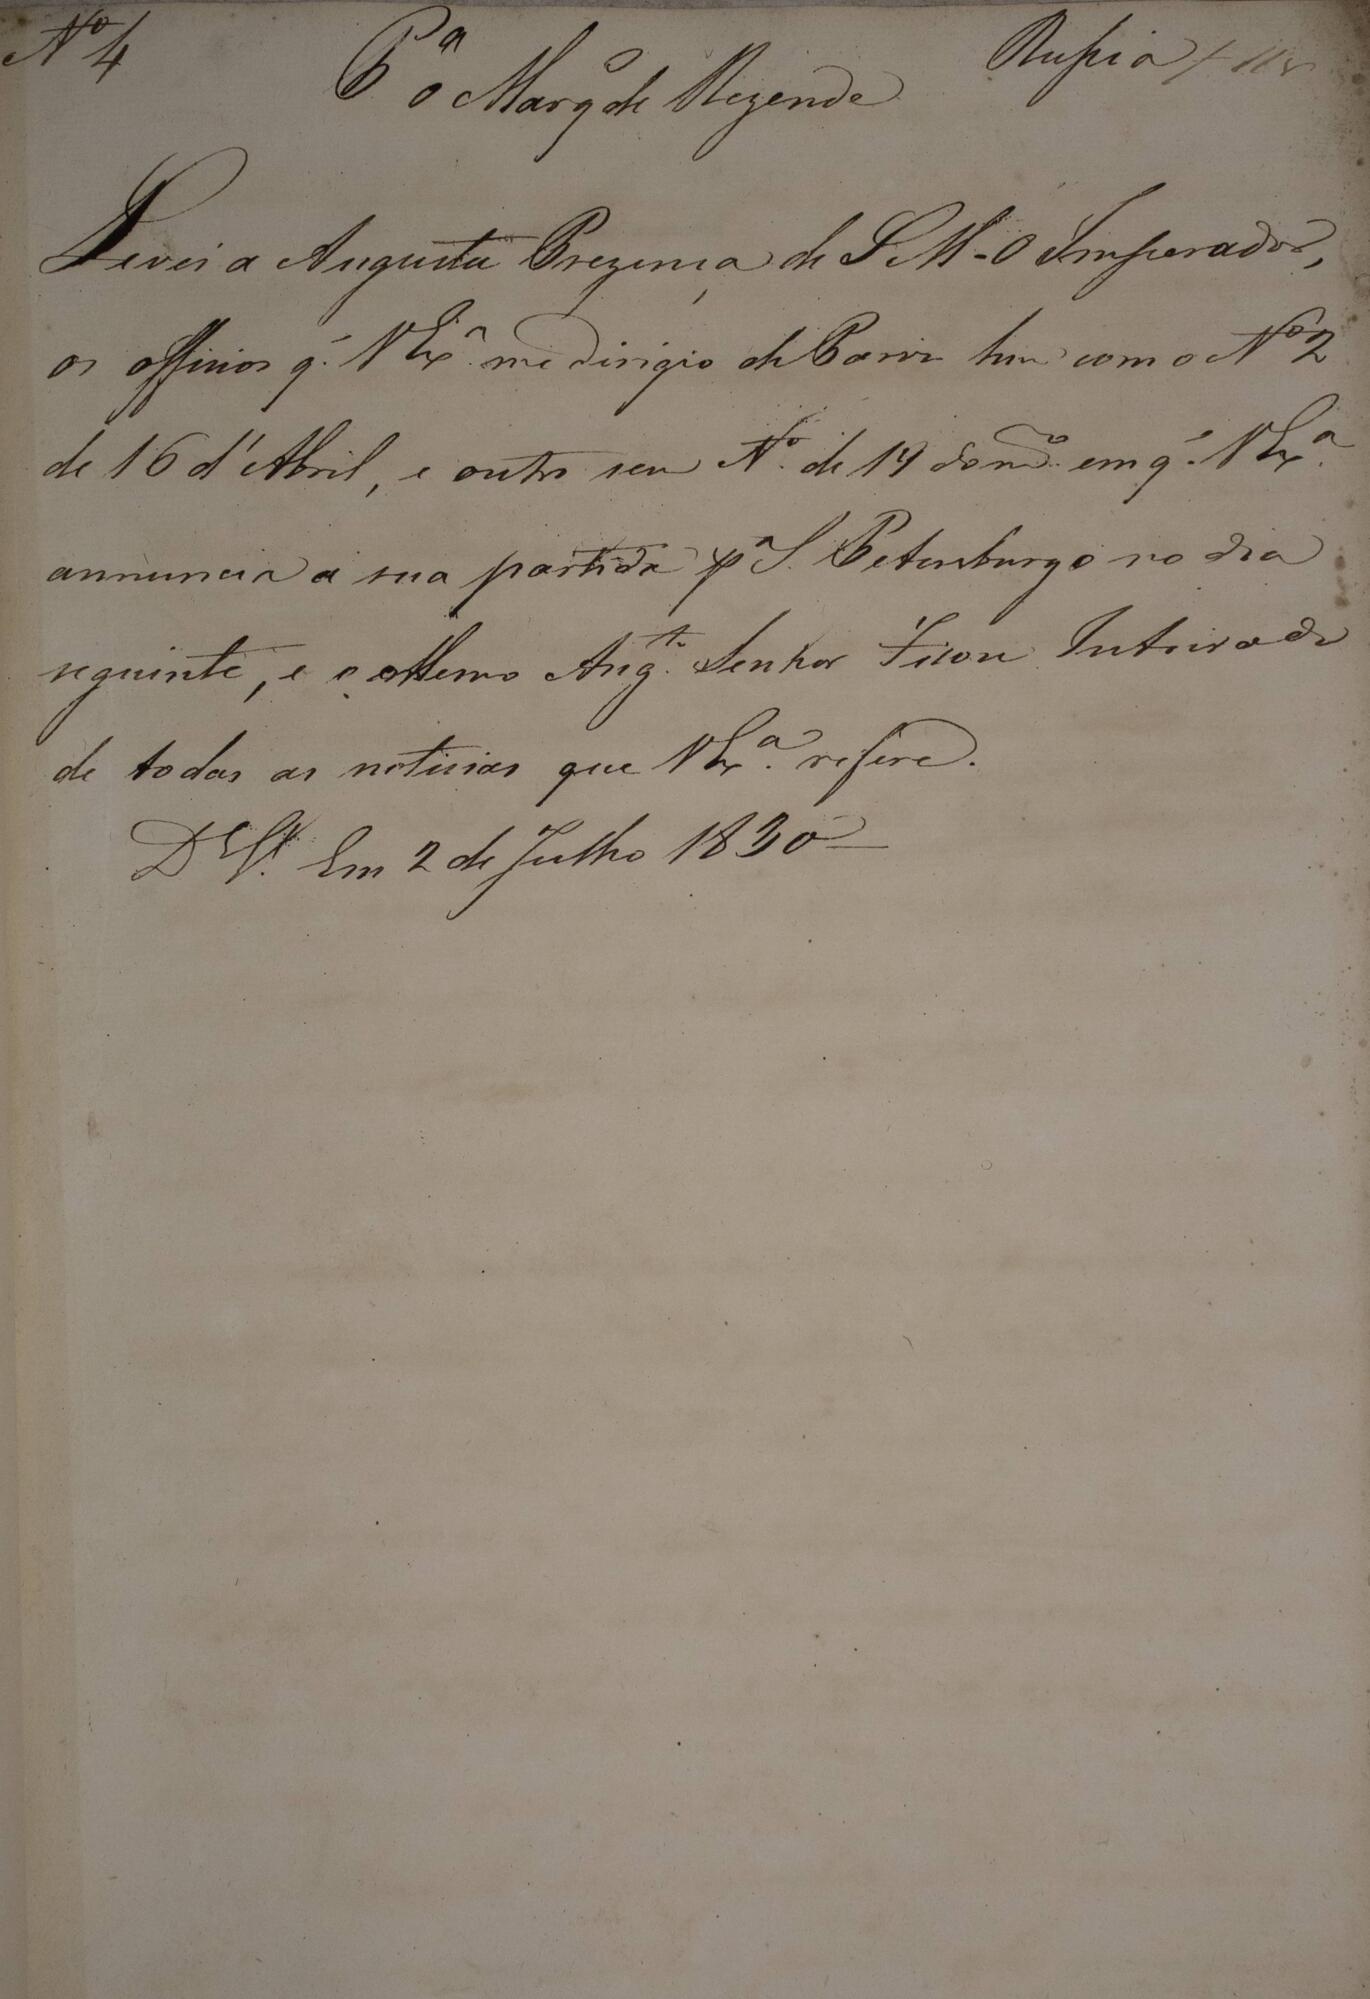 Nº 4 Pª o Marqº de Rezende Russia
Levei a Augusta Prezença de S M-O Imperador,
os officios q. V Exª. me dirigio de Paris hum com o Nº 2
de 16 d'Abril, e outro sem Nº. de 19 do mº. em q. V Exª.
annuncia a sua partida pª S. Petersburgo no dia
seguinte, e o Mesmo Augtº. Senhor Ficou Inteirado
de todas as noticias que V Exª. refere.
Em 2 de Julho 1830